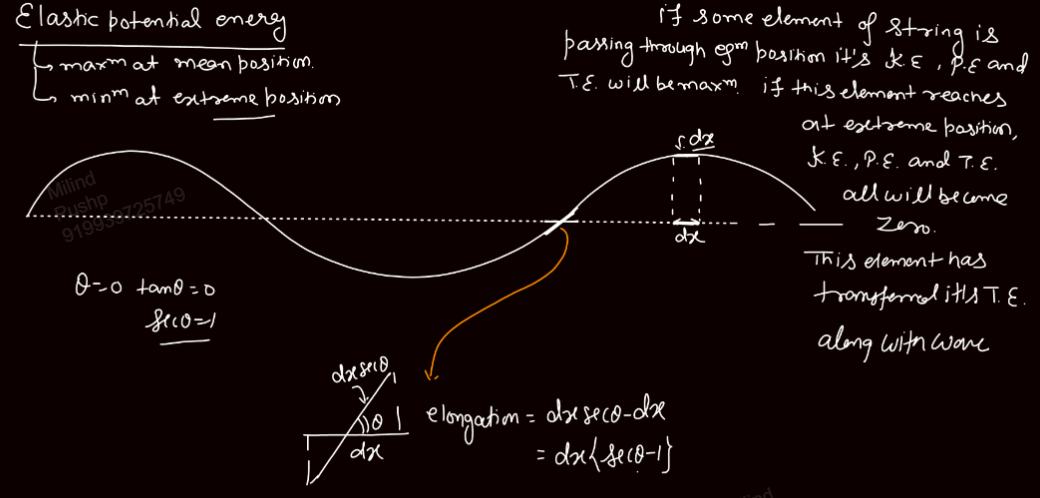 Elastic potential energy
↳ maxᵐ at mean position.
↳ minᵐ at extreme position
if some element of string is
passing through eqm position it's K.E, P.E and
T.E. will be maxᵐ. if this element reaches
at extreme position,
K.E., P.E. and T.E.
all will become
Zero.
This element has
transferred it's T.E.
along with wave
dx
dx
Milind
Pushp
919939725749
θ=0 tanθ=0
secθ=1
dx secθ
θ
dx
elongation = dx secθ-dx
= dx{secθ-1}